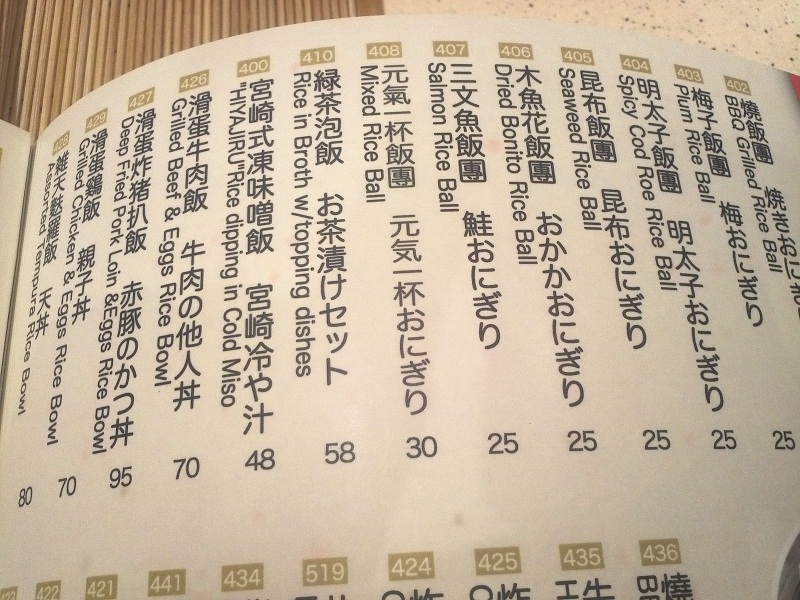 402 燒飯團 焼きおに 25
BBQ Grilled Rice Ball
403 梅子飯團 梅おにぎり 25
Plum Rice Ball
404 明太子飯團 明太子おにぎり 25
Spicy Cod Roe Rice Ball
405 昆布飯團 昆布おにぎり 25
Seaweed Rice Ball
406 木魚花飯團 おかかおにぎり 25
Dried Bonito Rice Ball
407 三文魚飯團 鮭おにぎり 25
Salmon Rice Ball
408 元氣一杯飯團 元気一杯おにぎり 30
Mixed Rice Ball
410 緑茶泡飯 お茶漬けセット 58
Rice in Broth w/topping dishes
400 宮崎式凍味噌飯 宮崎冷や汁 48
"HIYAJIRU"Rice dipping in Cold Miso
426 滑蛋牛肉飯 牛肉の他人丼 70
Grilled Beef & Eggs Rice Bowl
427 滑蛋炸猪扒飯 赤豚のかつ丼 95
Deep Fried Pork Loin &Eggs Rice Bowl
429 滑蛋鶏飯 親子丼 70
Grilled Chicken & Eggs Rice Bowl
428 雑天麩羅飯 天丼 80
Assorted Tempura Rice Bowl
436 燒
435 牛
425 炸
424 炸
519
434
441
421
422